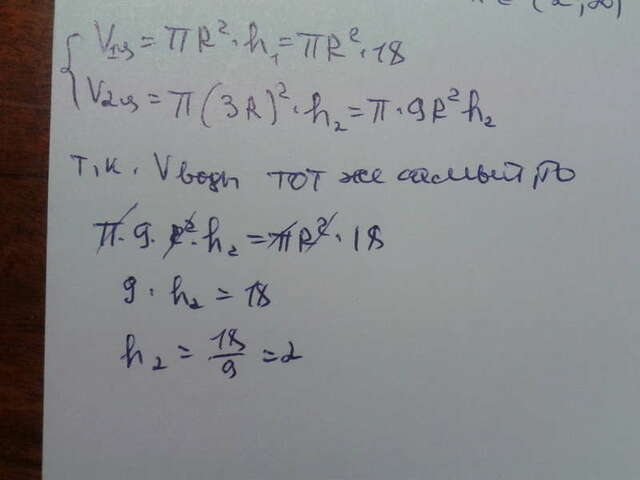 V₁ц = πR²·h₁ = πR²·18
V₂ц = π(3R)²·h₂ = π·9R²h₂
т.к. Vводы тот же самый, то
π·9·R²·h₂ = πR²·18
9·h₂ = 18
h₂ = 18/9 = 2